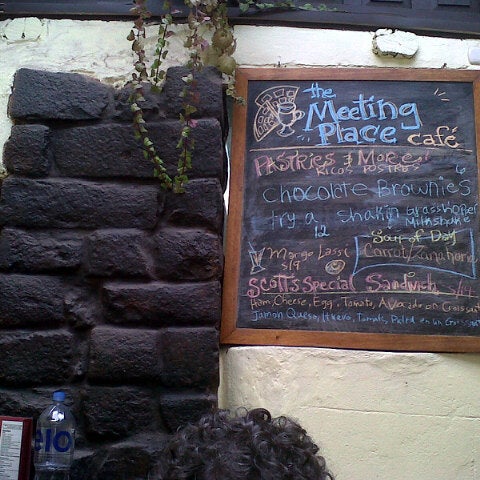 the
Meeting
Place café
PASTRIES & MORE
RICOS POSTRES 6
chocolate Brownies
try a shakin Grasshopper
Milkshake
12
Soup of Day
Mango Lassi
Carrot/Zanahoria
S/9
SCOTT'S Special Sandwich
Ham, Cheese, Egg, Tomato, Avocado on Croissant
Jamon Queso, Huevo, Tomate, on un Croissant
elo